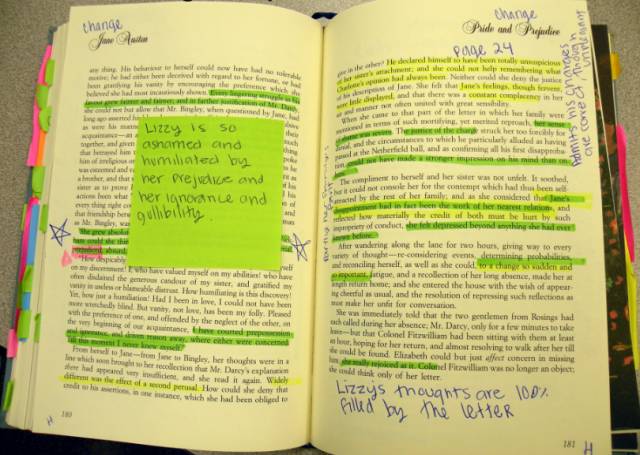 change
Jane Austen
any thing. His behaviour to herself could now have had no tolerable
motive; he had either been deceived with regard to her fortune, or had
been gratifying his vanity by encouraging the preference which she
believed she had most incautiously shown. Every lingering struggle in his
favour grew fainter and fainter; and in farther justification of Mr. Darcy,
she could not but allow that Mr. Bingley, when questioned by Jane, had
long ago asserted his
as were his manners
acquaintance—an
together, and given
that betrayed him
him of irreligious or
was esteemed and
a brother, and that
sister as to prove
actions been what
every thing right could
that friendship between
as Mr. Bingley, was
Lizzy is so
ashamed and
humiliated by
her prejudice and
her ignorance and
gullibility.
She grew absolutely
prejudiced, absurd.
"How despicably
on my discernment! I, who have valued myself on my abilities! who have
often disdained the generous candour of my sister, and gratified my
vanity in useless or blameable distrust. How humiliating is this discovery!
Yet, how just a humiliation! Had I been in love, I could not have been
more wretchedly blind. But vanity, not love, has been my folly. Pleased
with the preference of one, and offended by the neglect of the other, on
the very beginning of our acquaintance, I have courted prepossession
and ignorance, and driven reason away, where either were concerned.
Till this moment I never knew myself."
From herself to Jane—from Jane to Bingley, her thoughts were in a
line which soon brought to her recollection that Mr. Darcy's explanation
there had appeared very insufficient, and she read it again. Widely
different was the effect of a second perusal. How could she deny that
credit to his assertions, in one instance, which she had been obliged to
180
H
change
Pride and Prejudice
page 24
give in the other? He declared himself to have been totally unsuspicious
of her sister's attachment; and she could not help remembering what
Charlotte's opinion had always been. Neither could she deny the justice
of his description of Jane. She felt that Jane's feelings, though fervent,
were little displayed, and that there was a constant complacency in her
air and manner not often united with great sensibility.
When she came to that part of the letter in which her family were
mentioned in terms of such mortifying, yet merited reproach, her sense
of shame was severe. The justice of the charge struck her too forcibly for
denial, and the circumstances to which he particularly alluded as having
passed at the Netherfield ball, and as confirming all his first disapprobation,
could not have made a stronger impression on his mind than on
hers.
The compliment to herself and her sister was not unfelt. It soothed,
but it could not console her for the contempt which had thus been self-
attracted by the rest of her family; and as she considered that Jane's
disappointment had in fact been the work of her nearest relations, and
reflected how materially the credit of both must be hurt by such
impropriety of conduct, she felt depressed beyond any thing she had ever
known before.
After wandering along the lane for two hours, giving way to every
variety of thought—re-considering events, determining probabilities,
and reconciling herself, as well as she could, to a change so sudden and
so important, fatigue, and a recollection of her long absence, made her at
length return home; and she entered the house with the wish of appear-
ing cheerful as usual, and the resolution of repressing such reflections as
must make her unfit for conversation.
She was immediately told that the two gentlemen from Rosings had
each called during her absence; Mr. Darcy, only for a few minutes to take
leave—but that Colonel Fitzwilliam had been sitting with them at least
an hour, hoping for her return, and almost resolving to walk after her till
she could be found. Elizabeth could but just affect concern in missing
him; she really rejoiced at it. Colonel Fitzwilliam was no longer an object;
she could think only of her letter.
Lizzy's thoughts are 100%
filled by the letter
181
H